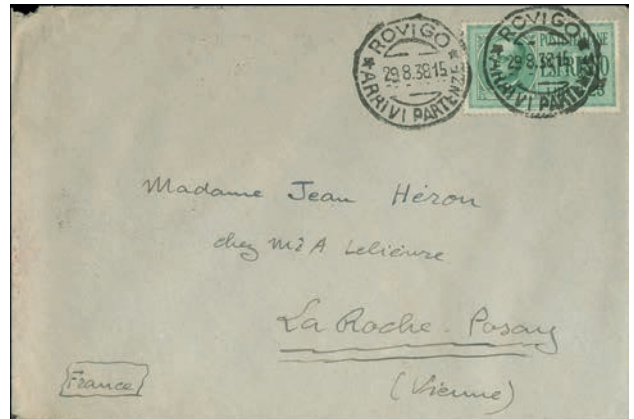 ROVIGO
29.8.38.15
ARRIVI PARTENZE
ROVIGO
29.8.38.15
ARRIVI PARTENZE
POSTE ITALIANE
ESPRESSO
Madame Jean Héron
chez Mr A Lelièvre
La Roche-Posay
(Vienne)
France